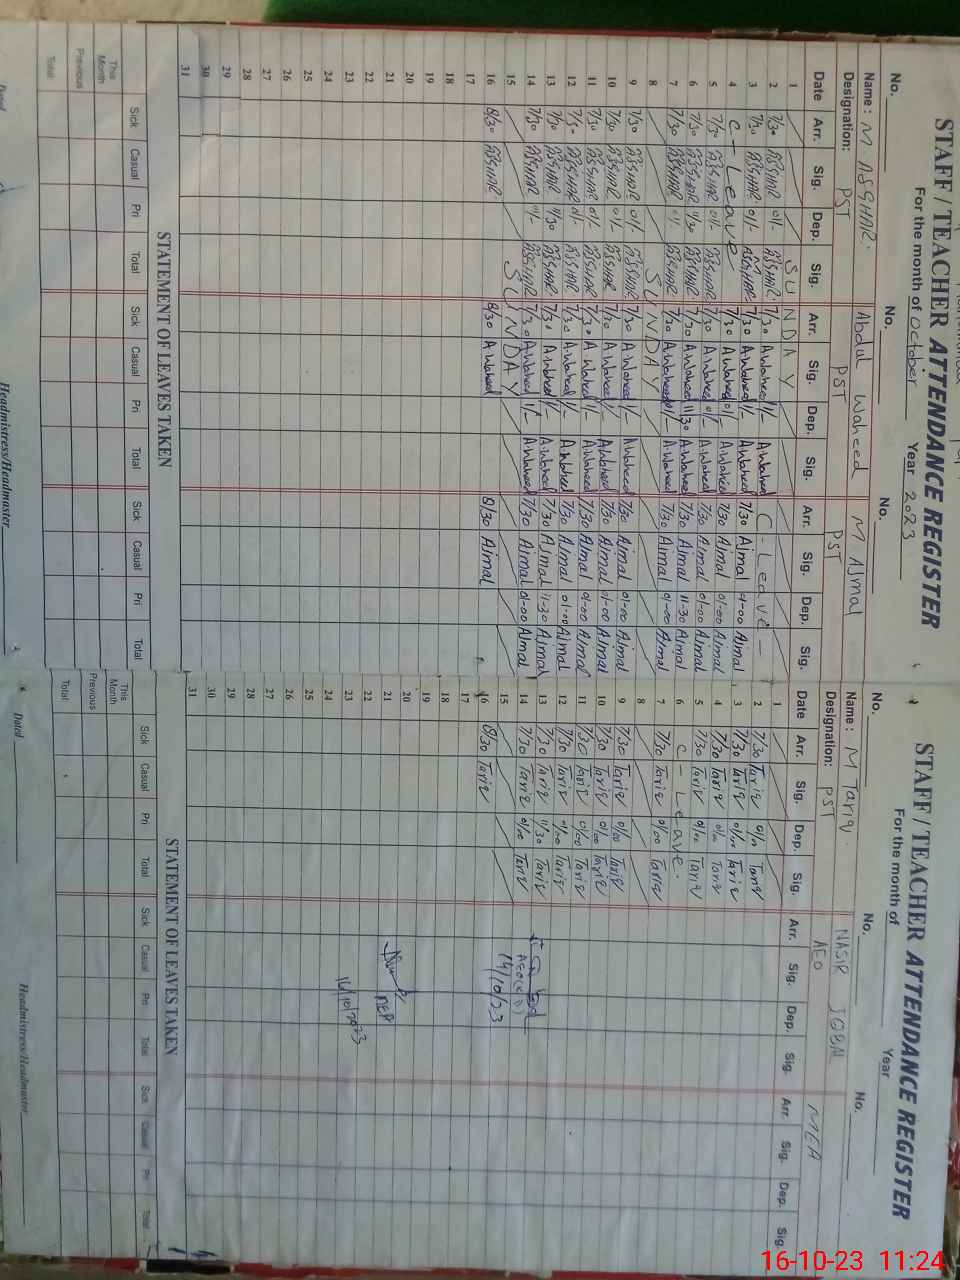 STAFF / TEACHER ATTENDANCE REGISTER
For the month of October Year 2023
No. No. No.
Name : M ASGHAR. Abdul Waheed M Ajmal
Designation: PST PST PST
Date Arr. Sig. Dep. Sig. Arr. Sig. Dep. Sig. Arr. Sig. Dep. Sig.
1 SUNDAY
2 7/30 ASGHAR 01/- ASGHAR. 7/30 A.Waheed 1/- A.Waheed C - Leave -
3 7/30 ASGHAR 01/- ASGHAR. 7/30 A.Waheed 1/- A.Waheed 7/30 Ajmal 01-00 Ajmal
4 C - Leave 7/30 A.Waheed 01/- A.Waheed 7/30 Ajmal 01-00 Ajmal
5 7/30 ASGHAR 01/- ASGHAR 7/30 A.Waheed 01/- A.Waheed 7/30 Ajmal 01-00 Ajmal
6 7/30 ASGHAR 11/30 ASGHAR 7/30 A.Waheed 11/30 A.Waheed 7/30 Ajmal 11-30 Ajmal
7 7/30 ASGHAR 01/- ASGHAR 7/30 A.Waheed 01/- A.Waheed 7/30 Ajmal 01-00 Ajmal
8 SUNDAY
9 7/30 ASGHAR 01/- ASGHAR 7/30 A.Waheed 1/- A.Waheed 7/30 Ajmal 01-00 Ajmal
10 7/30 ASGHAR 01/- ASGHAR 7/30 A.Waheed 1/- A.Waheed 7/30 Ajmal 01-00 Ajmal
11 7/30 ASGHAR 01/- ASGHAR 7/30 A.Waheed 1/- A.Waheed 7/30 Ajmal 01-00 Ajmal
12 7/30 ASGHAR 01/- ASGHAR 7/30 A.Waheed 1/- A.Waheed 7/30 Ajmal 01-00 Ajmal
13 7/30 ASGHAR 11/30 ASGHAR 7/30 A.Waheed 1/- A.Waheed 7/30 Ajmal 11-30 Ajmal
14 7/30 ASGHAR 01/- ASGHAR 7/30 A.Waheed 1/- A.Waheed 7/30 Ajmal 01-00 Ajmal
15 SUNDAY
16 8/30 ASGHAR 8/30 A.Waheed 8/30 Ajmal
17
18
19
20
21
22
23
24
25
26
27
28
29
30
31
STATEMENT OF LEAVES TAKEN
Sick Casual Pri Total Sick Casual Pri Total Sick Casual Pri Total
This Month
Previous
Total
Dated Headmistress/Headmaster
STAFF / TEACHER ATTENDANCE REGISTER
For the month of Year
No. No. No.
Name : M Tariq NASIR IQBAL MEA
Designation: PST AEO
Date Arr. Sig. Dep. Sig. Arr. Sig. Dep. Sig. Arr. Sig. Dep. Sig.
1
2 7/30 Tariq Tariq
3 7/30 Tariq Tariq
4 7/30 Tariq Tariq
5 7/30 Tariq Tariq
6 C - Leave.
7 7/30 Tariq 01/00 Tariq
8
9 7/30 Tariq 01/00 Tariq
10 7/30 Tariq 01/00 Tariq
11 7/30 Tariq 01/00 Tariq
12 7/30 Tariq 01/00 Tariq
13 7/30 Tariq 11/30 Tariq
14 7/30 Tariq 01/00 Tariq
15 14/10/23
16 8/30 Tariq
17
18
19
20
21
22
23 16/10/2023
24
25
26
27
28
29
30
31
STATEMENT OF LEAVES TAKEN
Sick Casual Pri Total Sick Casual Pri Total Sick Casual Pri Total
This Month
Previous
Total
Dated Headmistress/Headmaster
16-10-23 11:24